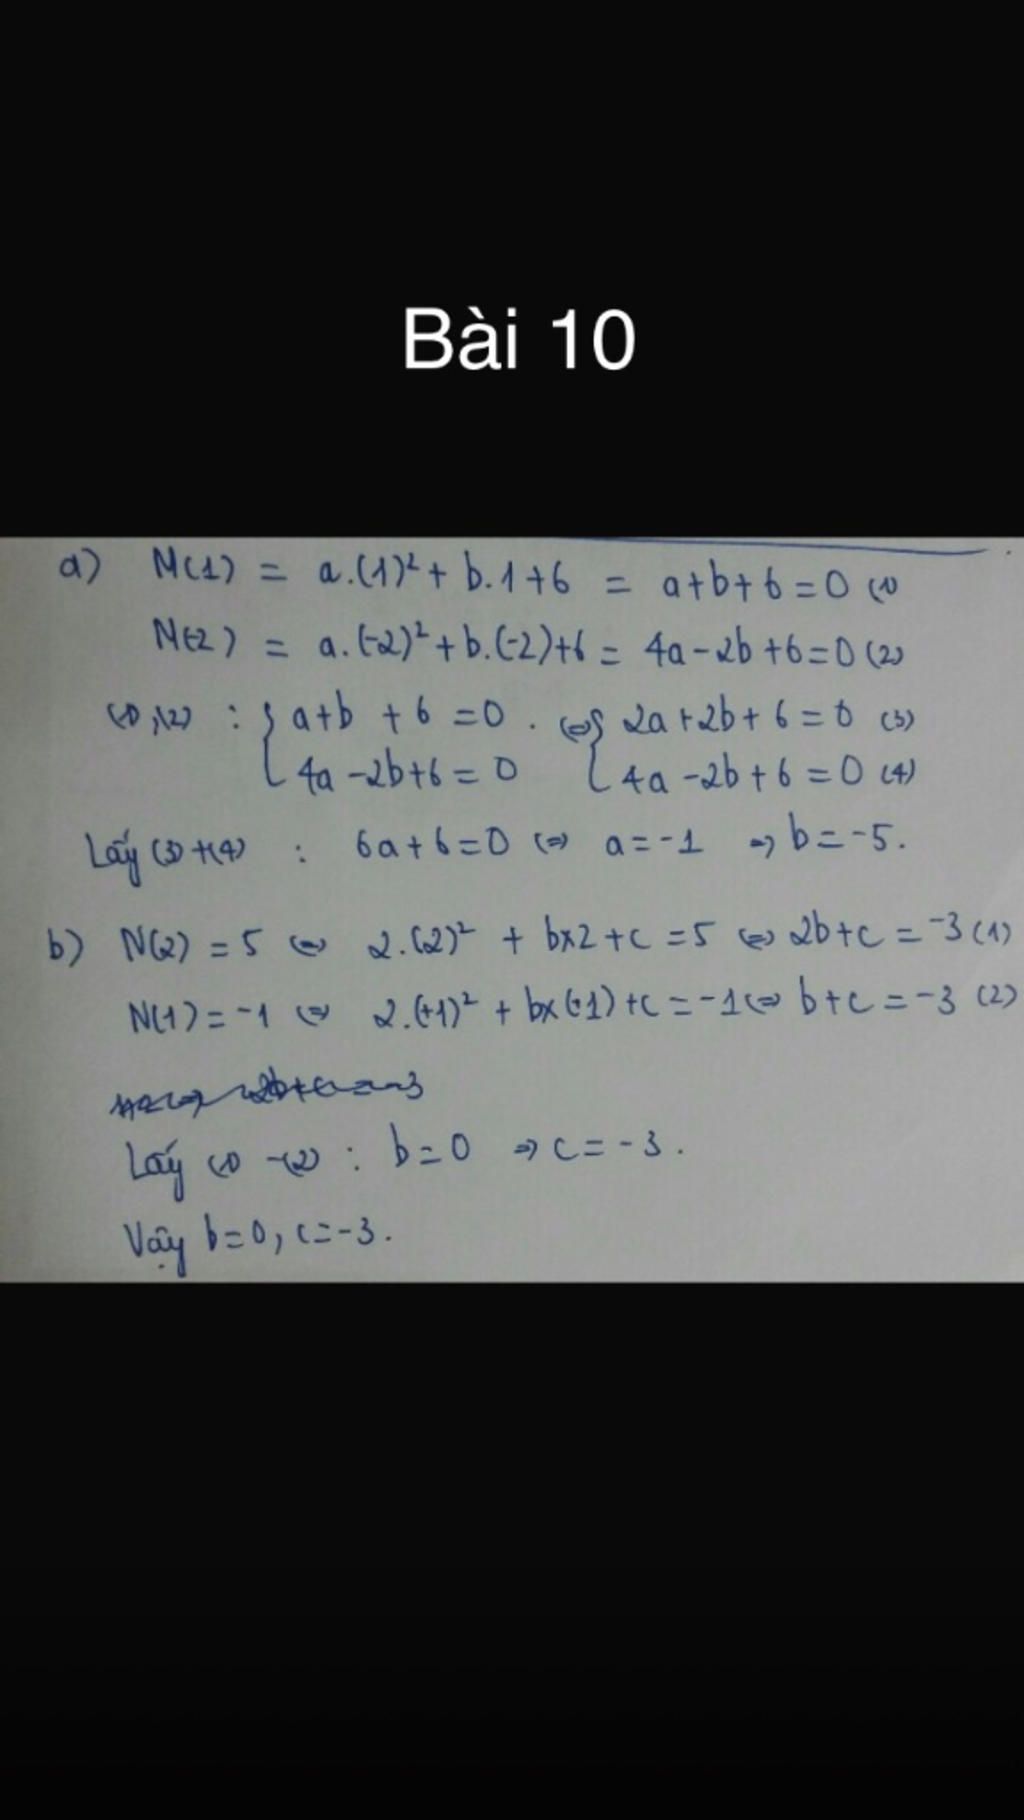 Bài 10
a) M(1) = a.(1)² + b.1+6 = a+b+6=0 (1)
M(-2) = a.(-2)²+b.(-2)+6 = 4a-2b+6=0 (2)
(1),(2) : { a+b + 6 = 0 . ⇔ { 2a+2b+6=0 (3)
4a-2b+6=0 4a-2b+6=0 (4)
Lấy (3)+(4) : 6a+6=0 ⇔ a=-1 ⇒ b=-5.
b) N(2) = 5 ⇔ 2.(2)² + bx2+c=5 ⇔ 2b+c = -3 (1)
N(1)=-1 ⇔ 2.(+1)² + bx(+1)+c=-1 ⇔ b+c = -3 (2)
Lấy (1) -(2) : b=0 ⇒ c=-3.
Vậy b=0, c=-3.